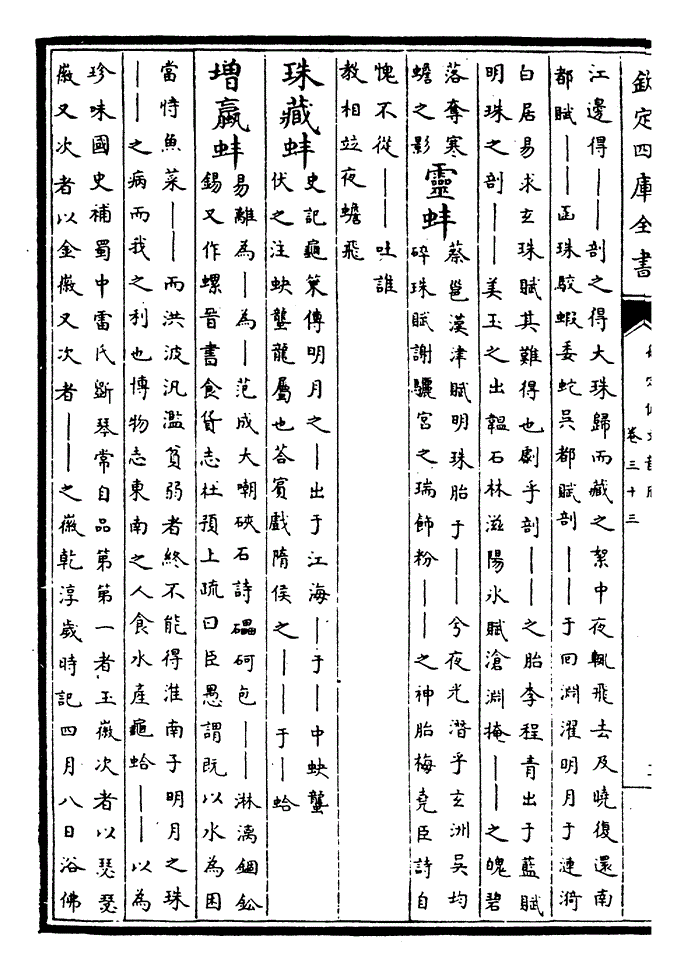 欽定四庫全書
卷三十三
江邊得——剖之得大珠歸而藏之絮中夜輒飛去及曉復還南
都賦——函珠駮蝦委蛇吳都賦剖——于回淵濯明月于漣漪
白居易求玄珠賦其難得也劇乎剖——之胎李程青出于藍賦
明珠之剖——美玉之出韞石林滋陽水賦滄淵掩——之媿碧
落奪寒
蟾之影
靈蚌
蔡邕漢津賦明珠胎于——兮夜光潛乎玄洲吳均
碎珠賦謝驪宮之瑞飾粉——之神胎梅堯臣詩自
愧不從——吐誰
教相竝夜蟾飛
珠藏蚌
史記龜策傳明月之—出于江海—于—中蚗蠪
伏之注蚗蠪龍屬也荅賓戲隋侯之——于—蛤
增蠃蚌
易離為—為—范成大嘲硤石詩礧砢包——淋漓錮鈆
錫又作螺晉書食貨志杜預上疏曰臣愚謂既以水為困
當恃魚菜——而洪波汎濫貧弱者終不能得淮南子明月之珠
——之病而我之利也博物志東南之人食水產龜蛤——以為
珍味國史補蜀中雷氏斵琴常自品第第一者玉徽次者以瑟瑟
徽又次者以金徽又次者——之徽乾淳歲時記四月八日浴佛